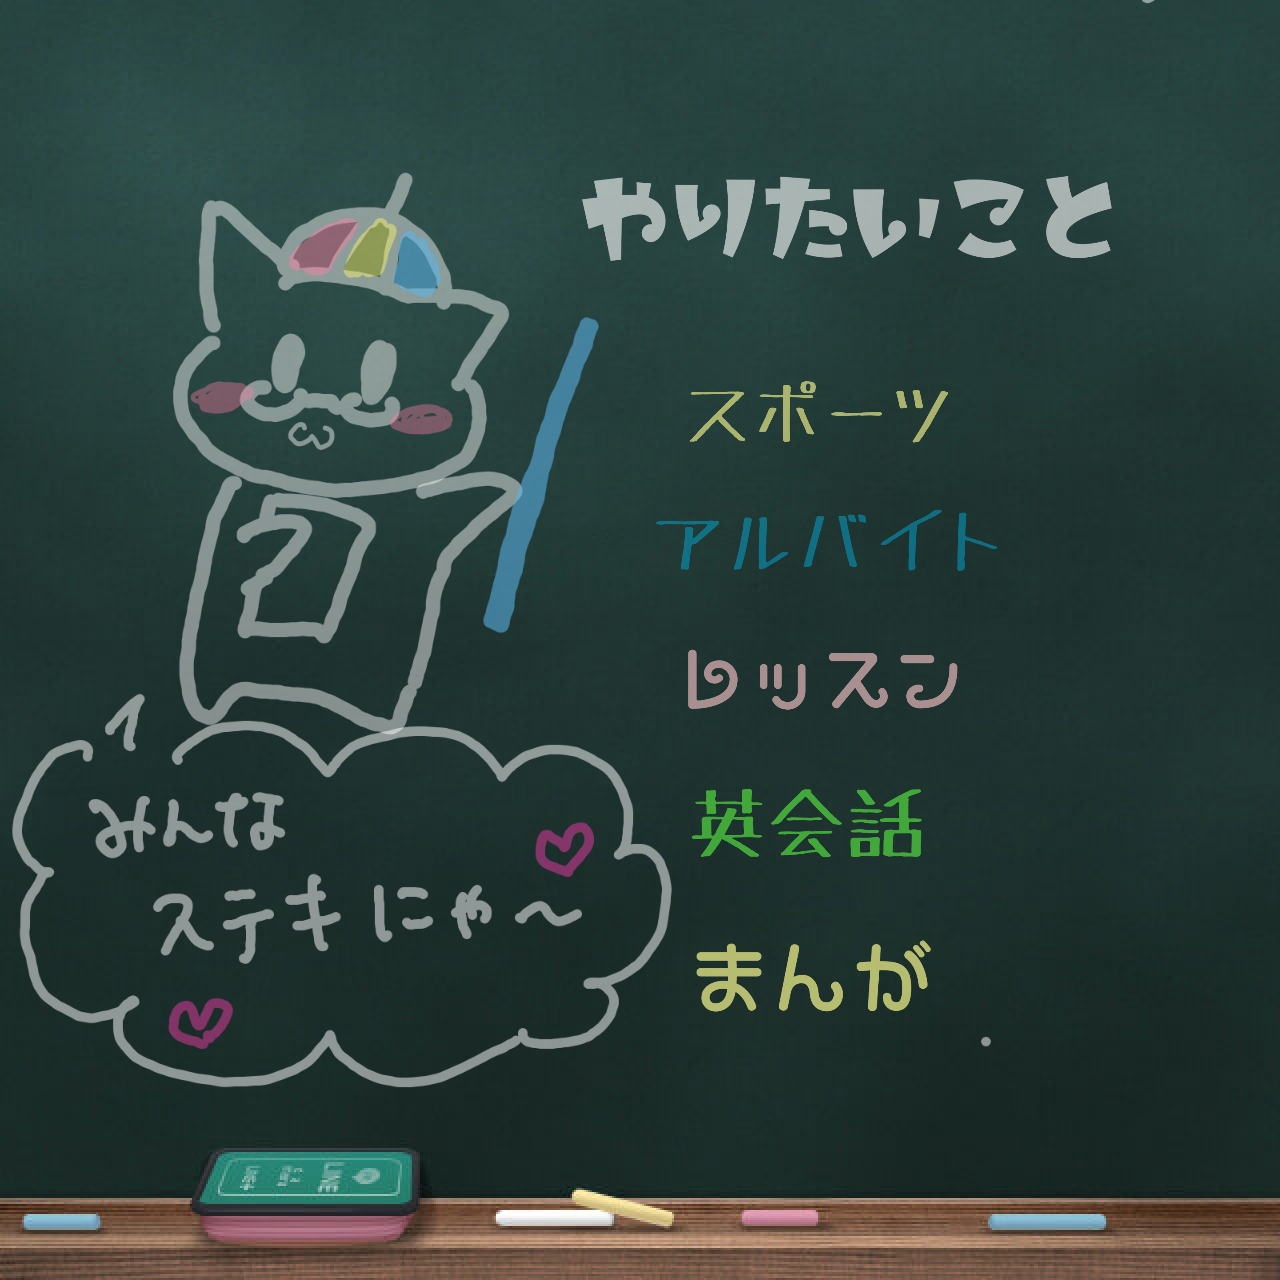 やりたいこと
スポーツ
アルバイト
レッスン
英会話
まんが
2
みんな
ステキにゃ～
LINE